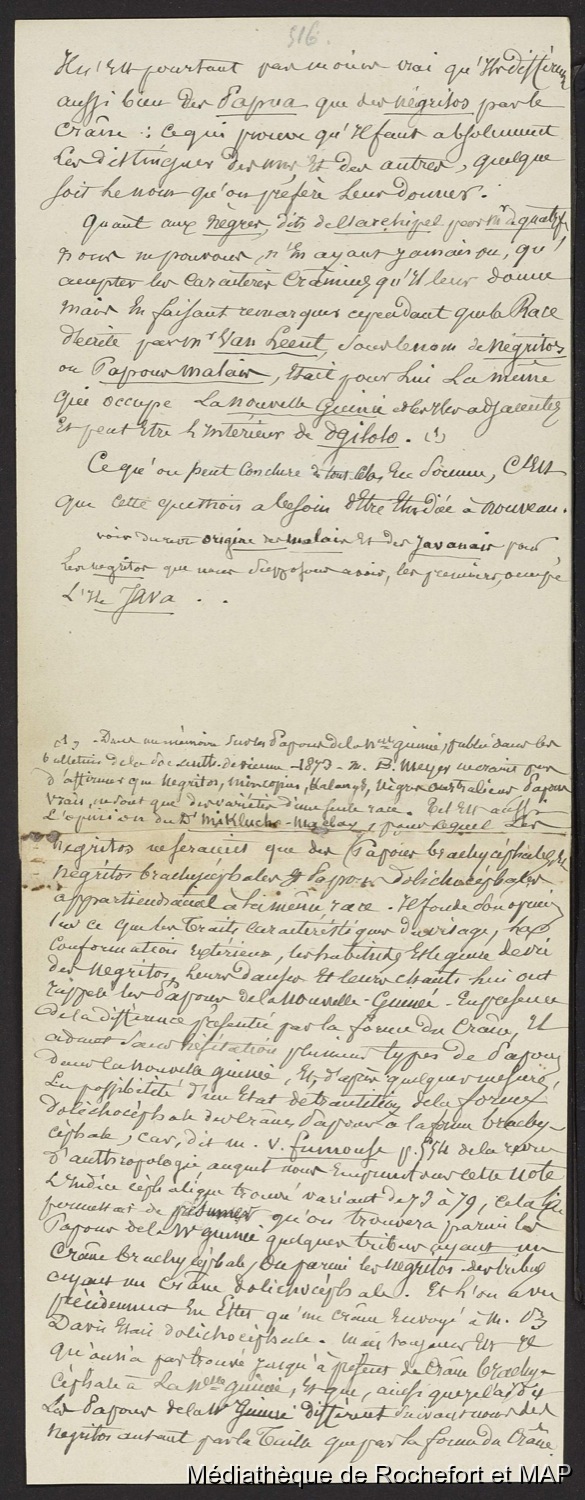 516.
Il n'est pourtant pas moins vrai qu'Ils diffèrent
aussi bien des Papua que des négritos par le
crâne : ce qui prouve qu'Il faut absolument
Les distinguer des uns Et des autres, quelque
soit Le nom qu'on préfère Leur donner.
Quant aux Nègres, dits de l'archipel par Mr de quatrefs
nous ne pouvons, n'En ayant jamais vu, qu'
accepter les caractères crâniens qu'Il leur donne
mais En faisant remarquer cependant que la Race
décrite par Mr Van Leent, sous le nom de Négritos
ou Papous malais, était pour Lui La même
qui occupe La Nouvelle Guinée et les Iles adjacentes
Et peut Etre l'Intérieur de Dgilolo. (1)
Ce qu'on peut conclure de tout cela En somme, C'Est
que cette question a besoin d'Etre Etudiée à nouveau.
voir du reste origine des malais Et des Javanais pour
Les négritos que nous supposons avoir, les premiers, occupé
L'Ile Java . .
(1) - Dans un mémoire sur les Papous de la Nlle guinée, publié dans les
bulletins de la Soc. de Vienne - 1873 - M. B. Meyer ne craint pas
d'affirmer que Négritos, Mincopies, Kalangs, Nègres australiens, Papous
vrais, ne sont que des variétés d'une seule race. Tel Est aussi
L'opinion du Dr Mikluchо-Maclay, pour Lequel Les
Négritos ne seraient que des Papous brachycéphales, Et
Négritos brachycéphales & Papous dolichocéphales
appartiendraient à la même race. Il fonde son opinion
sur ce que les traits caractéristiques du visage, La
conformation Extérieure, les habitudes Et le genre de vie
des Négritos, leurs danses Et leurs chants lui ont
rappelé les Papous de la Nouvelle-Guinée - En présence
de la différence présentée par la forme du crâne, Il
admet sans hésitation plusieurs types de Papous
dans la Nouvelle guinée, Et, d'après quelques mesures,
La possibilité d'un Etat de transition de la forme
dolichocéphale des crânes Papous à la forme brachy-
céphale, car, dit M. V. p. 554 de la revue
d'anthropologie auquel nous Empruntons cette Note
L'Indice céphalique trouvé variant de 73 à 79, cela
permettait de présumer qu'on trouvera parmi les
Papous de la Nlle guinée quelques tribus ayant un
Crâne brachycéphale, Ou parmi les Négritos des tribus
ayant un crâne dolichocéphale. Et L'on a vu
précédemment En Effet qu'un crâne Envoyé à M. Bd
Davis était dolichocéphale. Mais toujours Est Il
qu'on n'a pas trouvé jusqu'à présent de crâne brachy-
céphale à La Nlle guinée, Et que, ainsi
Les Papous de la Nlle Guinée diffèrent suivant nous des
Négritos autant par la Taille que par la forme du Crâne.
Médiathèque de Rochefort et MAP